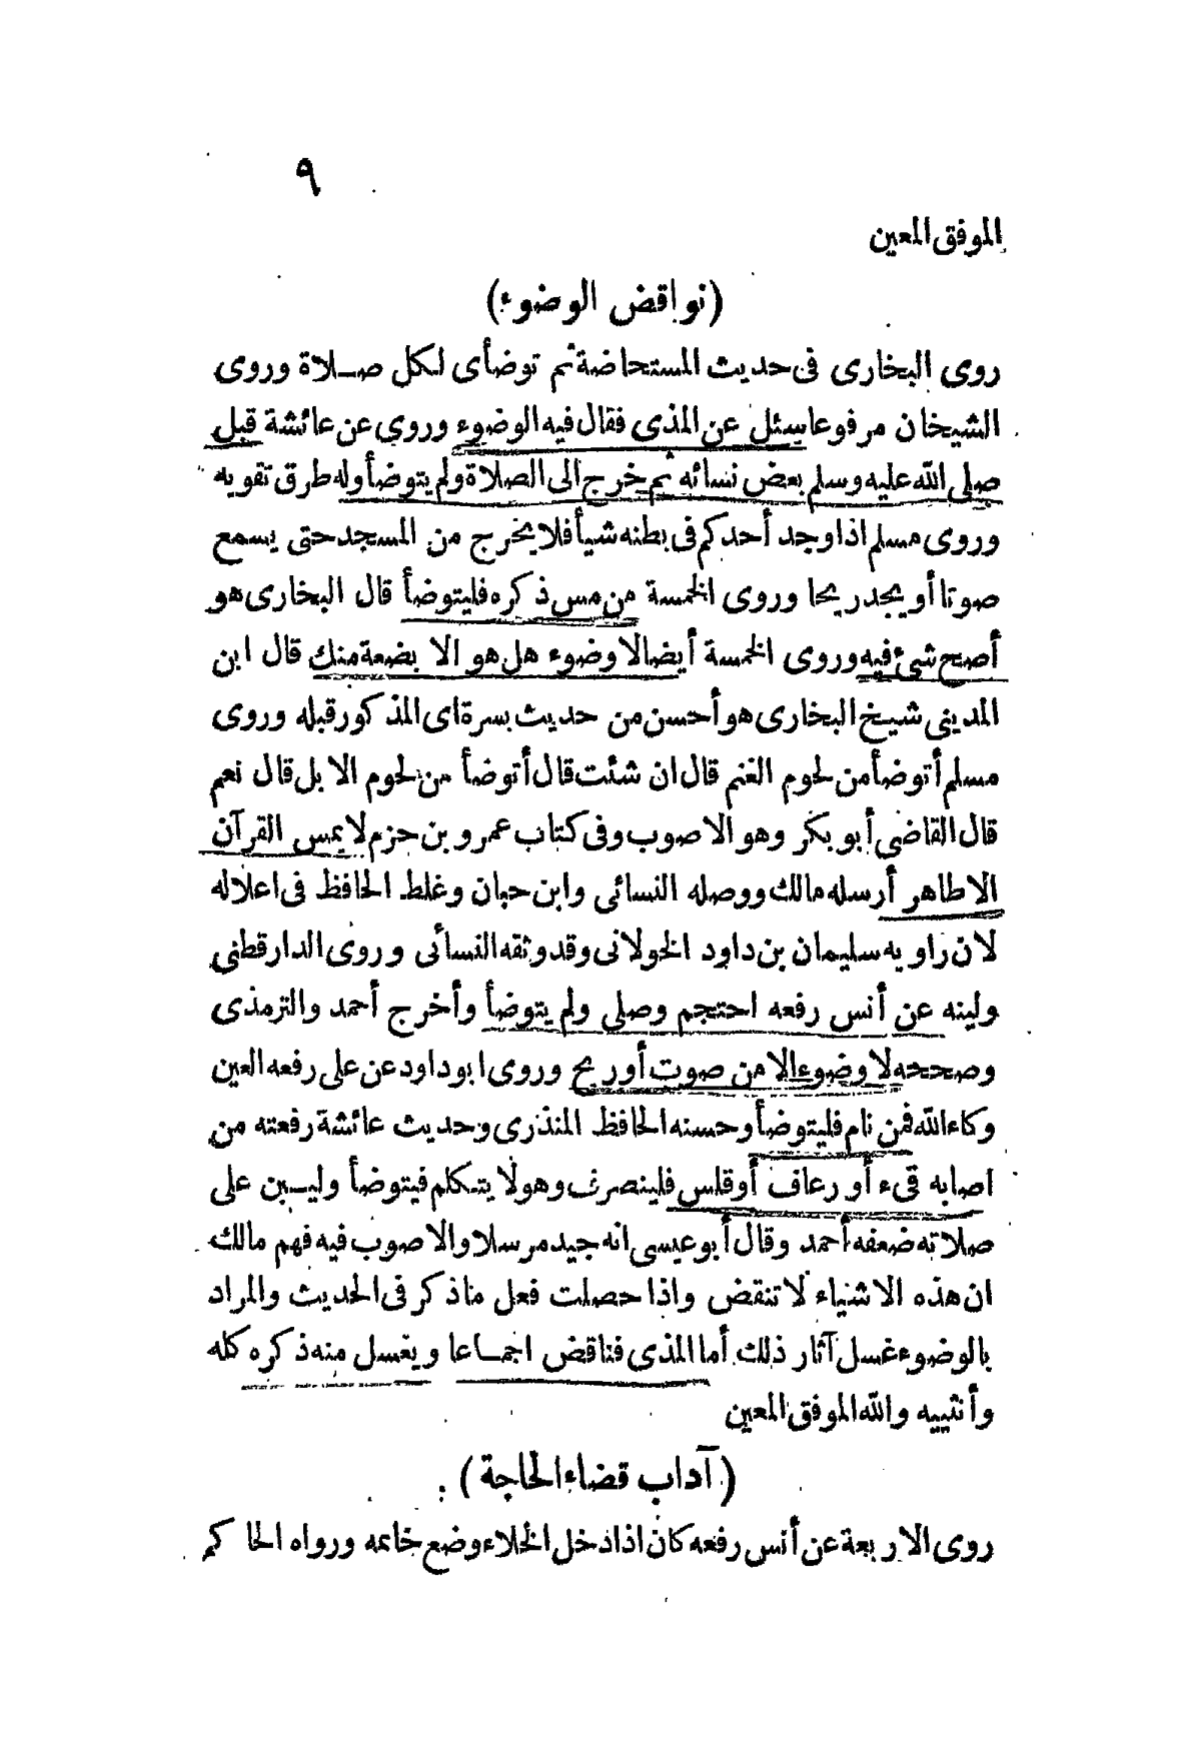 ٩
الموفق المعين
(نواقض الوضوء)
روى البخارى فى حديث المستحاضة ثم توضأى لكل صلاة وروى
الشيخان مرفوعا سئل عن المذى فقال فيه الوضوء وروى عن عائشة قبل
صلى الله عليه وسلم بعض نسائه ثم خرج الى الصلاة ولم يتوضأ وله طرق تقويه
وروى مسلم اذا وجد أحدكم فى بطنه شيأ فلا يخرج من المسجد حتى يسمع
صوتا أو يجد ريحا وروى الخمسة من مس ذكره فليتوضأ قال البخارى هو
أصح شئ فيه وروى الخمسة أيضا لا وضوء هل هو الا بضعة منك قال ابن
المدينى شيخ البخارى هو أحسن من حديث بسرة اى المذكور قبله وروى
مسلم أتوضأ من لحوم الغنم قال ان شئت قال أتوضأ من لحوم الابل قال نعم
قال القاضى أبو بكر وهو الاصوب وفى كتاب عمرو بن حزم لا يمس القرآن
الا طاهر أرسله مالك ووصله النسائى وابن حبان وغلط الحافظ فى اعلاله
لان راويه سليمان بن داود الخولانى وقد وثقه النسائى وروى الدارقطنى
ولينه عن أنس رفعه احتجم وصلى ولم يتوضأ وأخرج أحمد والترمذى
وصححه لا وضوء الا من صوت أو ريح وروى ابو داود عن على رفعه العين
وكاء الله فمن نام فليتوضأ وحسنه الحافظ المنذرى وحديث عائشة رفعته من
اصابه قىء أو رعاف أو قلس فلينصرف وهو لا يتكلم فيتوضأ وليبن على
صلاته ضعفه أحمد وقال أبو عيسى انه جيد مرسلا والاصوب فيه فهم مالك
ان هذه الاشياء لا تنقض واذا حصلت فعل ماذكر فى الحديث والمراد
بالوضوء غسل آثار ذلك أما المذى فناقض اجماعا ويغسل منه ذكره كله
وأنثييه والله الموفق المعين
(آداب قضاء الحاجة)
روى الاربعة عن أنس رفعه كان اذا دخل الخلاء وضع خاتمه ورواه الحاكم